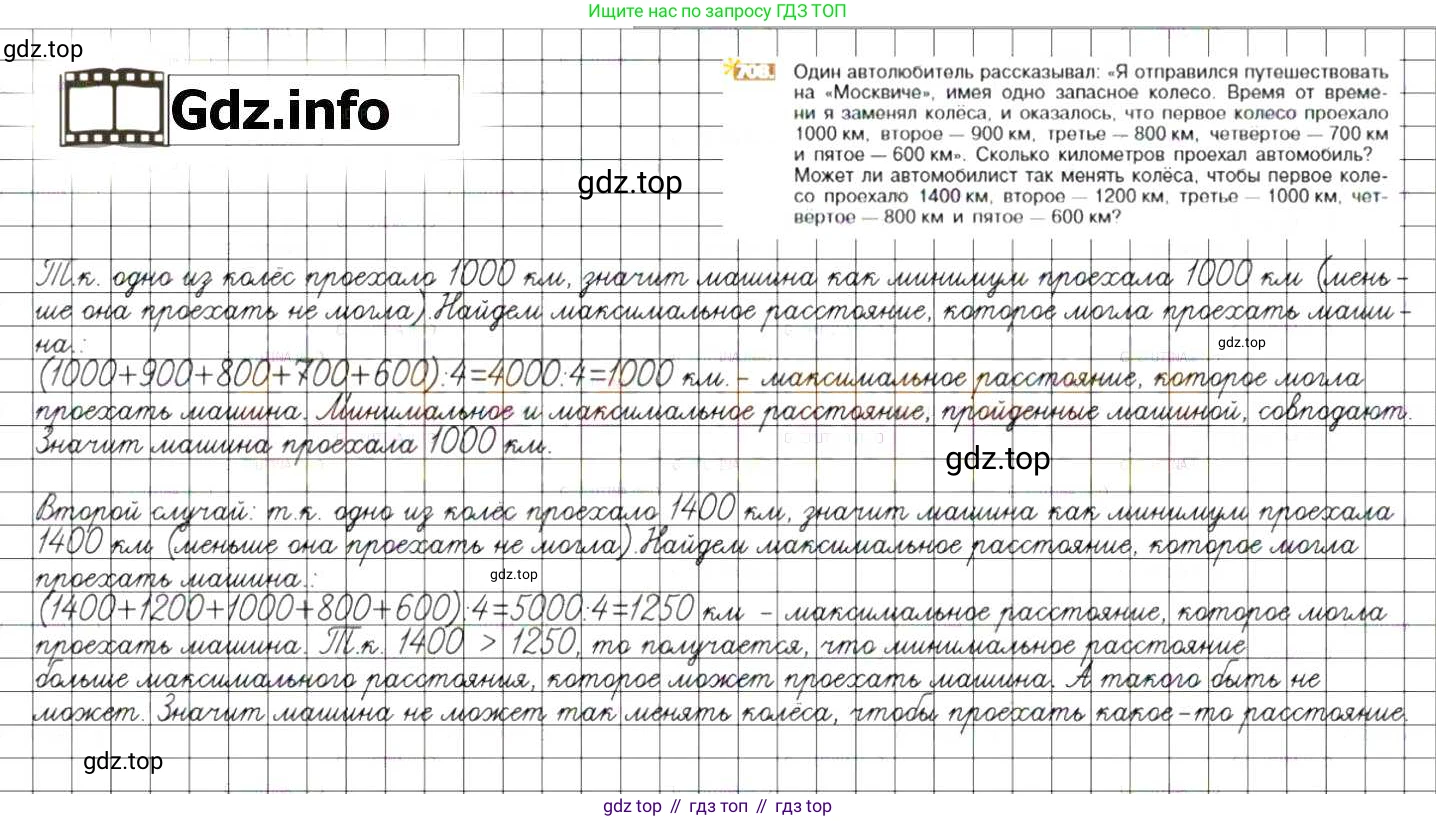 Ищите нас по запросу ГДЗ ТОП
gdz.top
Gdz.info
708.
Один автолюбитель рассказывал: «Я отправился путешествовать
на «Москвиче», имея одно запасное колесо. Время от време-
ни я заменял колёса, и оказалось, что первое колесо проехало
1000 км, второе — 900 км, третье — 800 км, четвертое — 700 км
и пятое — 600 км». Сколько километров проехал автомобиль?
Может ли автомобилист так менять колёса, чтобы первое коле-
со проехало 1400 км, второе — 1200 км, третье — 1000 км, чет-
вёртое — 800 км и пятое — 600 км?
gdz.top
Т.к. одно из колёс проехало 1000 км, значит машина как минимум проехала 1000 км (мень-
ше она проехать не могла). Найдем максимальное расстояние, которое могла проехать маши-
на.:
gdz.top
(1000+900+800+700+600):4=4000:4=1000 км. - максимальное расстояние, которое могла
проехать машина. Минимальное и максимальное расстояние, пройденные машиной, совподают.
Значит машина проехала 1000 км.
gdz.top
Второй случай: т.к. одно из колёс проехало 1400 км, значит машина как минимум проехала
1400 км (меньше она проехать не могла). Найдем максимальное расстояние, которое могла
проехать машина.:
gdz.top
(1400+1200+1000+800+600):4=5000:4=1250 км - максимальное расстояние, которое могла
проехать машина. Т.к. 1400 > 1250, то получается, что минимальное расстояние
больше максимального расстояния, которое может проехать машина. А такого быть не
может. Значит машина не может так менять колёса, чтобы проехать какое-то расстояние.
gdz.top
gdz top // гдз топ // гдз top